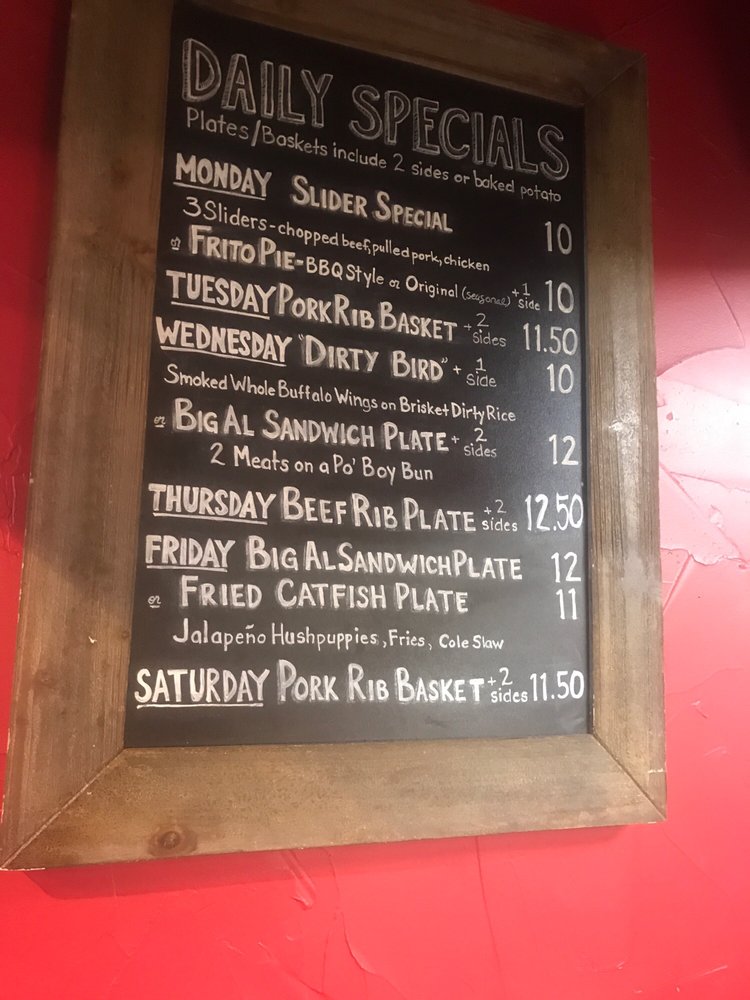 DAILY SPECIALS
Plates/Baskets include 2 sides or baked potato
MONDAY SLIDER SPECIAL 10
3 Sliders - chopped beef, pulled pork, chicken
or FRITO PIE - BBQ Style or Original (seasonal) +1 side 10
TUESDAY PORK RIB BASKET +2 sides 11.50
WEDNESDAY "DIRTY BIRD" +1 side 10
Smoked Whole Buffalo Wings on Brisket Dirty Rice
or BIG AL SANDWICH PLATE +2 sides 12
2 Meats on a Po' Boy Bun
THURSDAY BEEF RIB PLATE +2 sides 12.50
FRIDAY BIG AL SANDWICH PLATE 12
or FRIED CATFISH PLATE 11
Jalapeño Hushpuppies, Fries, Cole Slaw
SATURDAY PORK RIB BASKET +2 sides 11.50